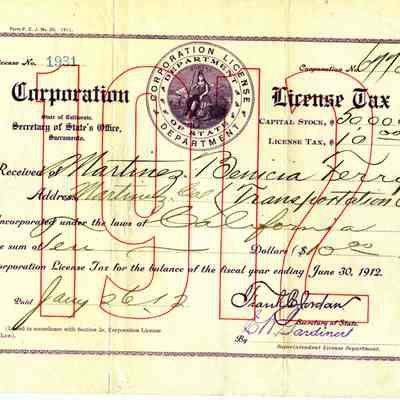 Form F. Z. J. No. 20. 1911.
License No. 1931
Corporation No. 677
CORPORATION LICENSE DEPARTMENT
DEPARTMENT OF STATE
1912
Corporation License Tax
State of California,
Secretary of State's Office,
Sacramento.
CAPITAL STOCK, $50,000
LICENSE TAX, $10.00
Received of Martinez Benicia Ferry
Address Martinez, Cal. Transportation Co
Incorporated under the laws of California
the sum of Ten Dollars ($10.00
Corporation License Tax for the balance of the fiscal year ending June 30, 1912.
Paid Jany 26 12
Frank C. Jordan
Secretary of State.
(Issued in accordance with Section 2e, Corporation License
Law).
By
Superintendent License Department.